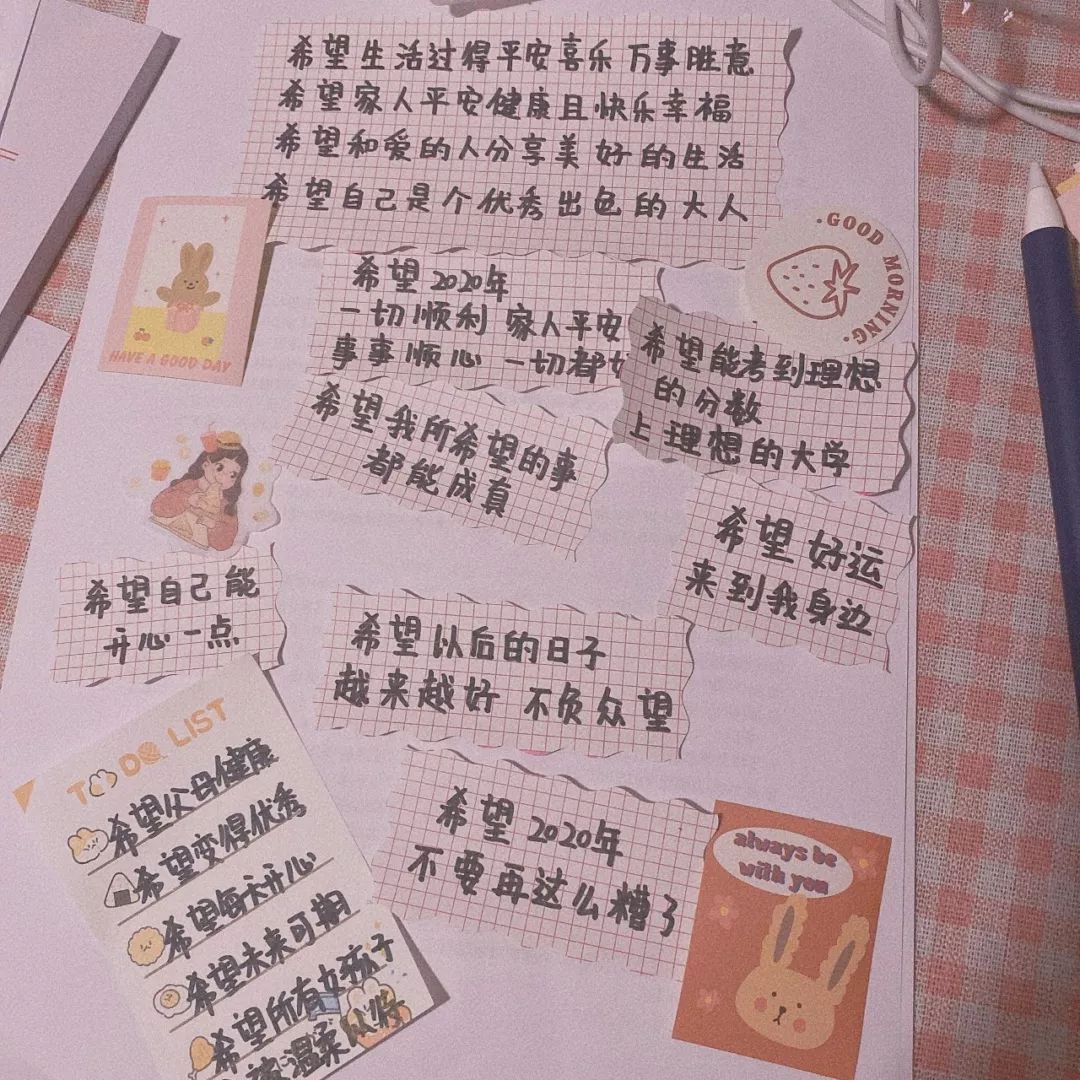 希望生活过得平安喜乐 万事胜意
希望家人平安健康且快乐幸福
希望和爱的人分享美好的生活
希望自己是个优秀出色的大人
HAVE A GOOD DAY
GOOD MORNING
希望2020年
一切顺利 家人平安
事事顺心 一切都
希望能考到理想
的分数
上理想的大学
希望我所希望的事
都能成真
希望好运
来到我身边
希望自己能
开心一点
希望以后的日子
越来越好 不负众望
TO DO LIST
希望父母健康
希望变得优秀
希望每天开心
希望未来可期
希望所有女孩子
被温柔以待
希望2020年
不要再这么糟了
always be
with you